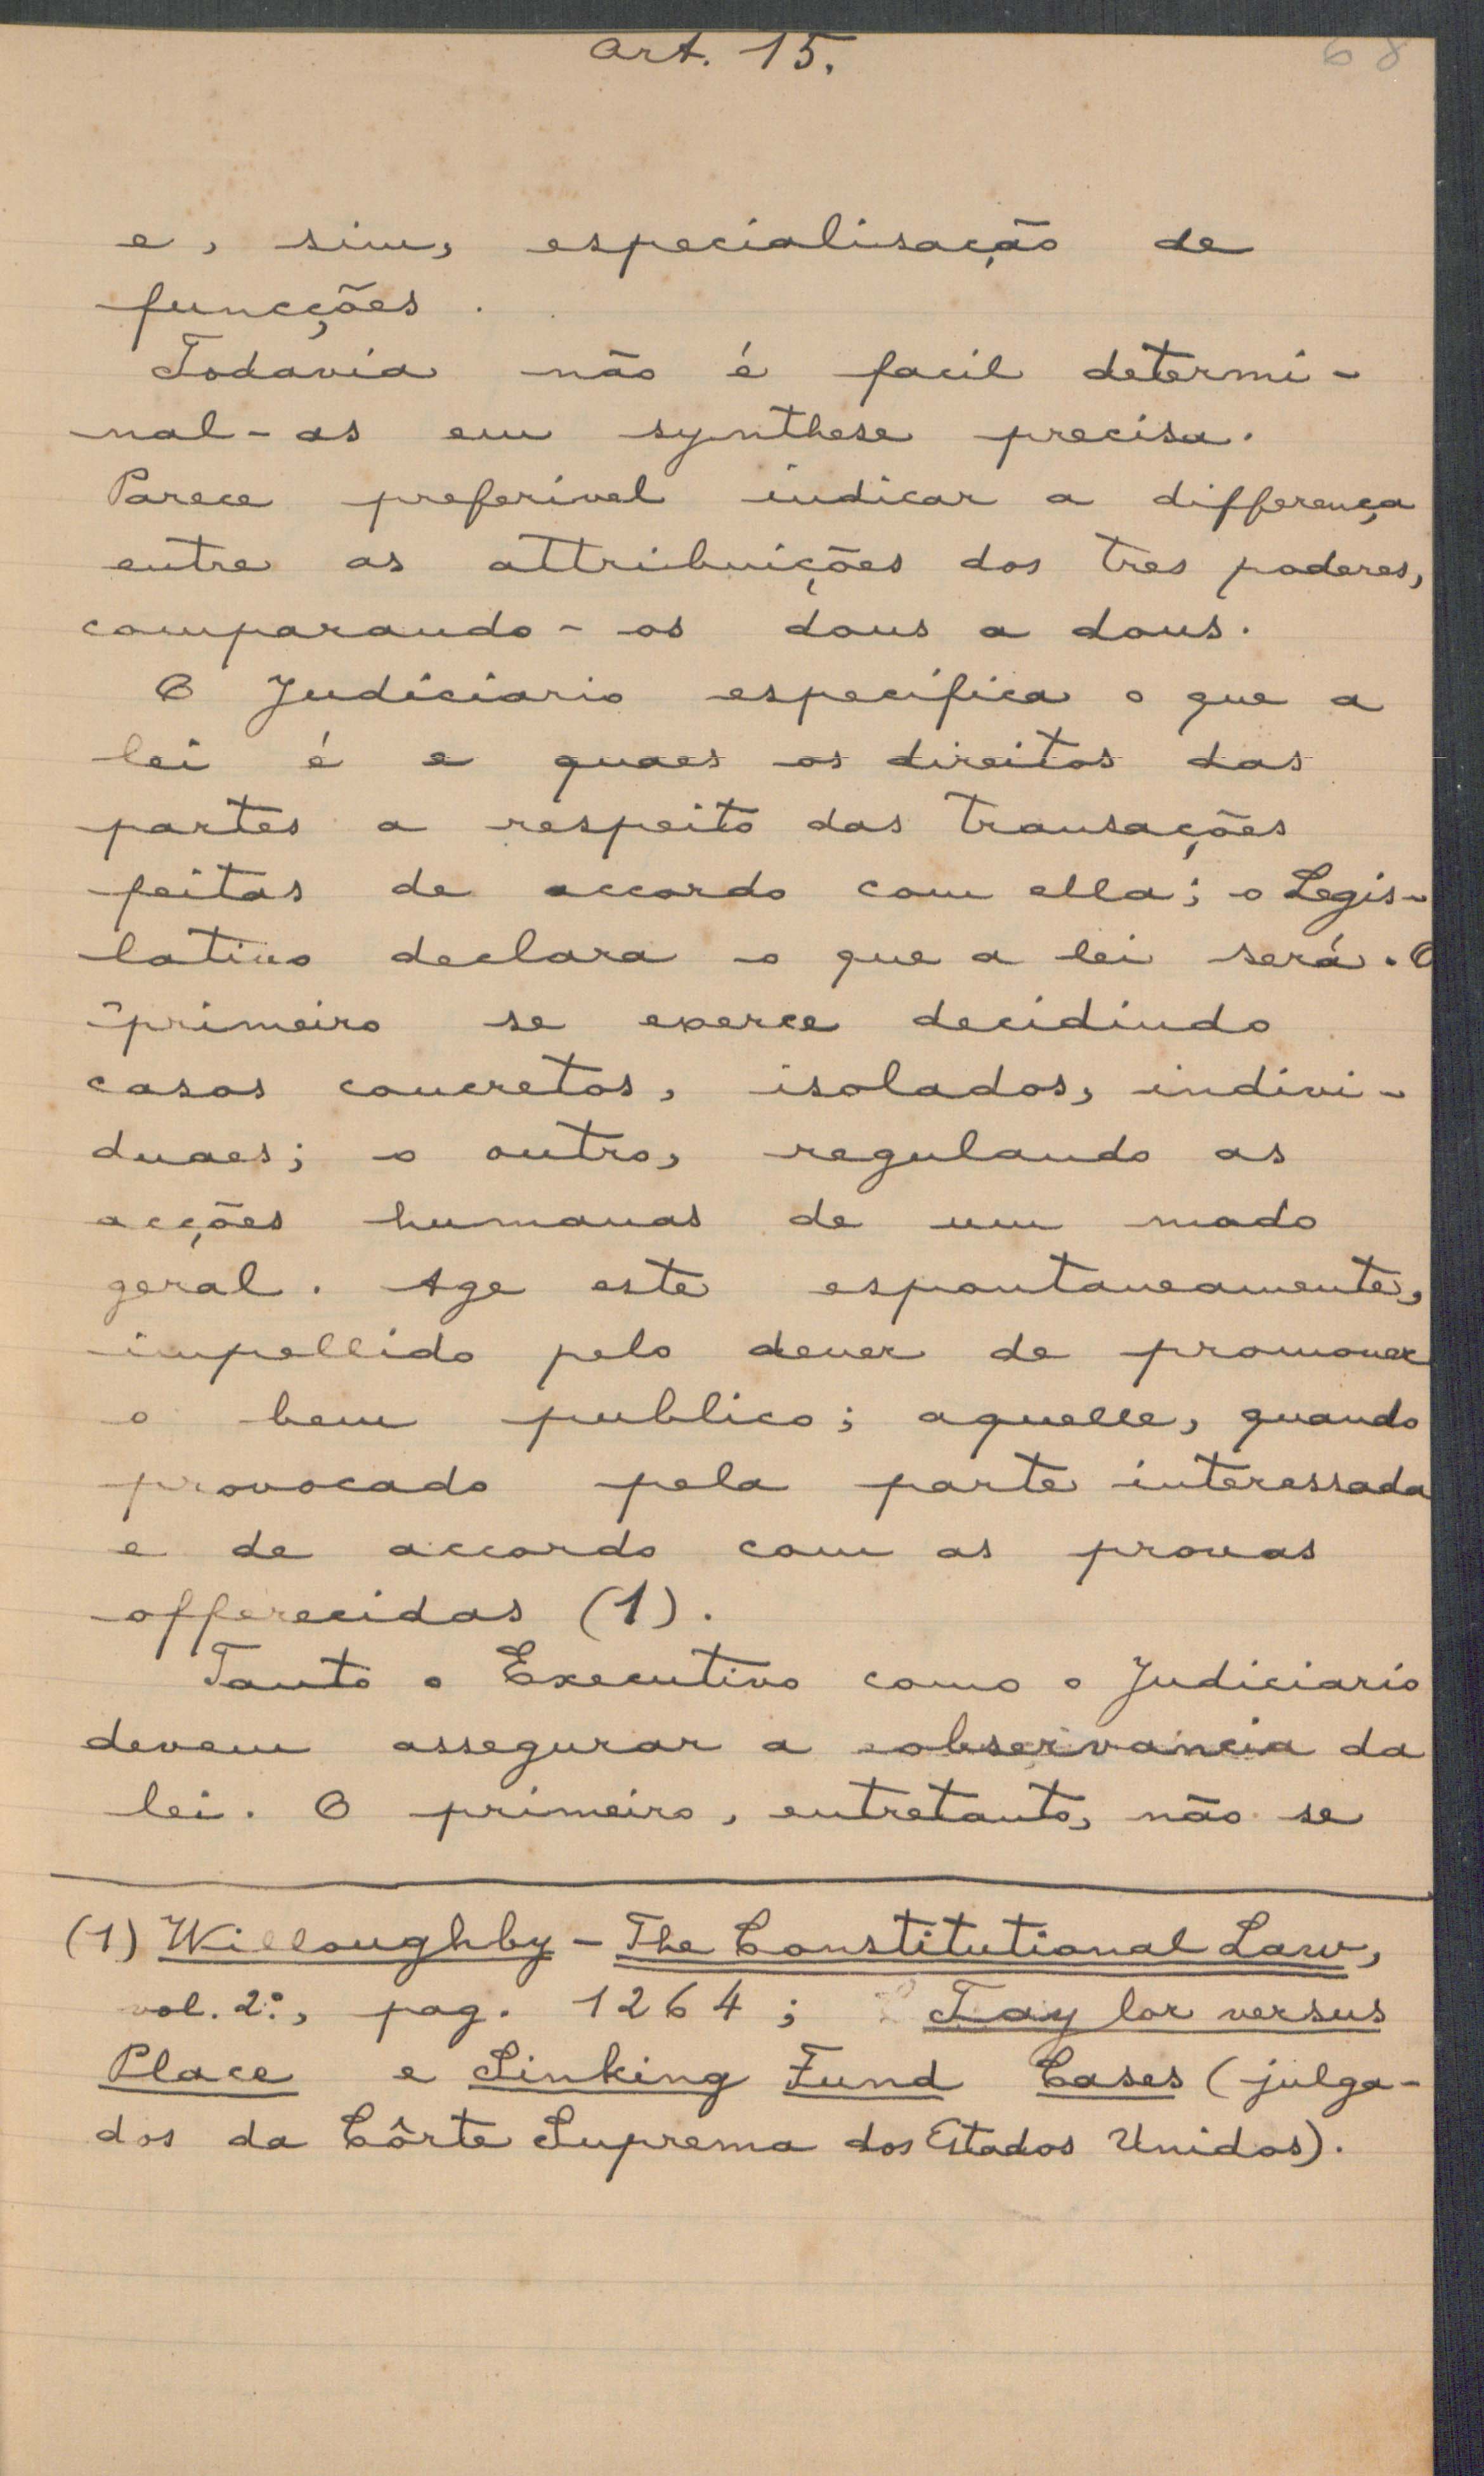 Art. 15.
68
e, sim, especialisação de
funcções.
Todavia não é facil determi-
nal-as em synthese precisa.
Parece preferivel indicar a differença
entre as attribuições dos tres poderes,
comparando-os dous a dous.
O Judiciario especifica o que a
lei é e quaes os direitos das
partes a respeito das transações
feitas de accordo com ella; o Legis-
lativo declara o que a lei será. O
primeiro se exerce decidindo
casos concretos, isolados, indivi-
duaes; o outro, regulando as
acções humanas de um modo
geral. Age este espontaneamente,
impellido pelo dever de promover
o bem publico; aquelle, quando
provocado pela parte interessada
e de accordo com as provas
offerecidas (1).
Tanto o Executivo como o Judiciario
devem assegurar a observancia da
lei. O primeiro, entretanto, não se
(1) Willoughby - The Constitutional Law,
vol. 2º, pag. 1264; Taylor versus
Place e Sinking Fund Cases (julga-
dos da Côrte Suprema dos Estados Unidos).